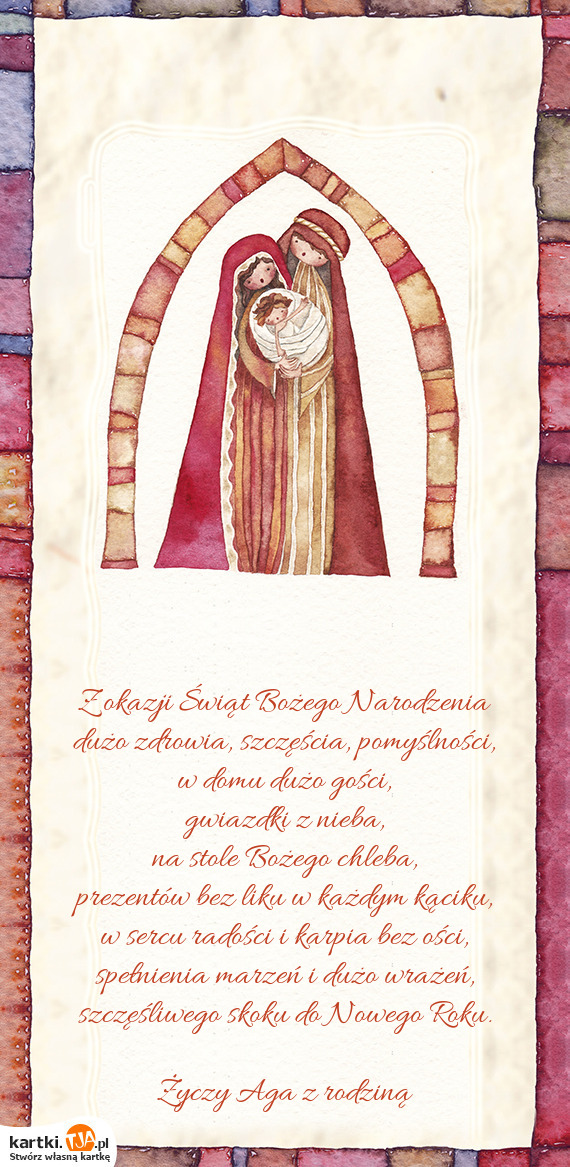 Z okazji Świąt Bożego Narodzenia
dużo zdrowia, szczęścia, pomyślności,
w domu dużo gości,
gwiazdki z nieba,
na stole Bożego chleba,
prezentów bez liku w każdym kąciku,
w sercu radości i karpia bez ości,
spełnienia marzeń i dużo wrażeń,
szczęśliwego skoku do Nowego Roku.
Życzy Aga z rodziną
kartki.TJA.pl
Stwórz własną kartkę